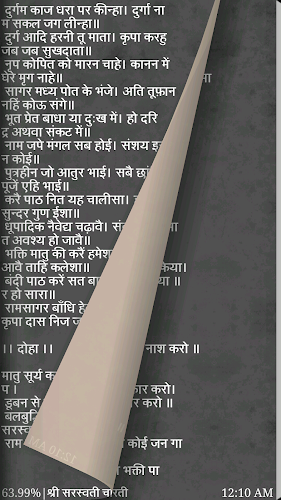 दुर्गम काज धरा पर कीन्हा। दुर्गा ना
म सकल जग लीन्हा॥
दुर्ग आदि हरनी तू माता। कृपा करहु
जब जब सुखदाता॥
नृप कोपित को मारन चाहे। कानन में
घेरे मृग नाहे॥
सागर मध्य पोत के भंजे। अति तूफ़ान
नहिं कोऊ संगे॥
भूत प्रेत बाधा या दुःख में। हो दरि
द्र अथवा संकट में॥
नाम जपे मंगल सब होई। संशय इ
न कोई॥
पुत्रहीन जो आतुर भाई। सबै छां
पूजें एहि भाई॥
करै पाठ नित यह चालीसा।
सुन्दर गुण ईशा॥
धूपादिक नैवेद्य चढ़ावै। सं मा
त अवश्य हो जावै॥
भक्ति मातु की करैं हमेश
आवै ताहिं कलेशा॥
बंदी पाठ करें सत बा
र हो सारा॥
रामसागर बाँधि हे
कृपा दास निज ज
।। दोहा ।। नाश करो ॥
मातु सूर्य क
प । कार करो।
डूबन से र करो ॥
बलबुद्धि
सरस्व
राम कोई जन गा
भक्ती पा
63.99%|श्री सरस्वती आरती 12:10 AM